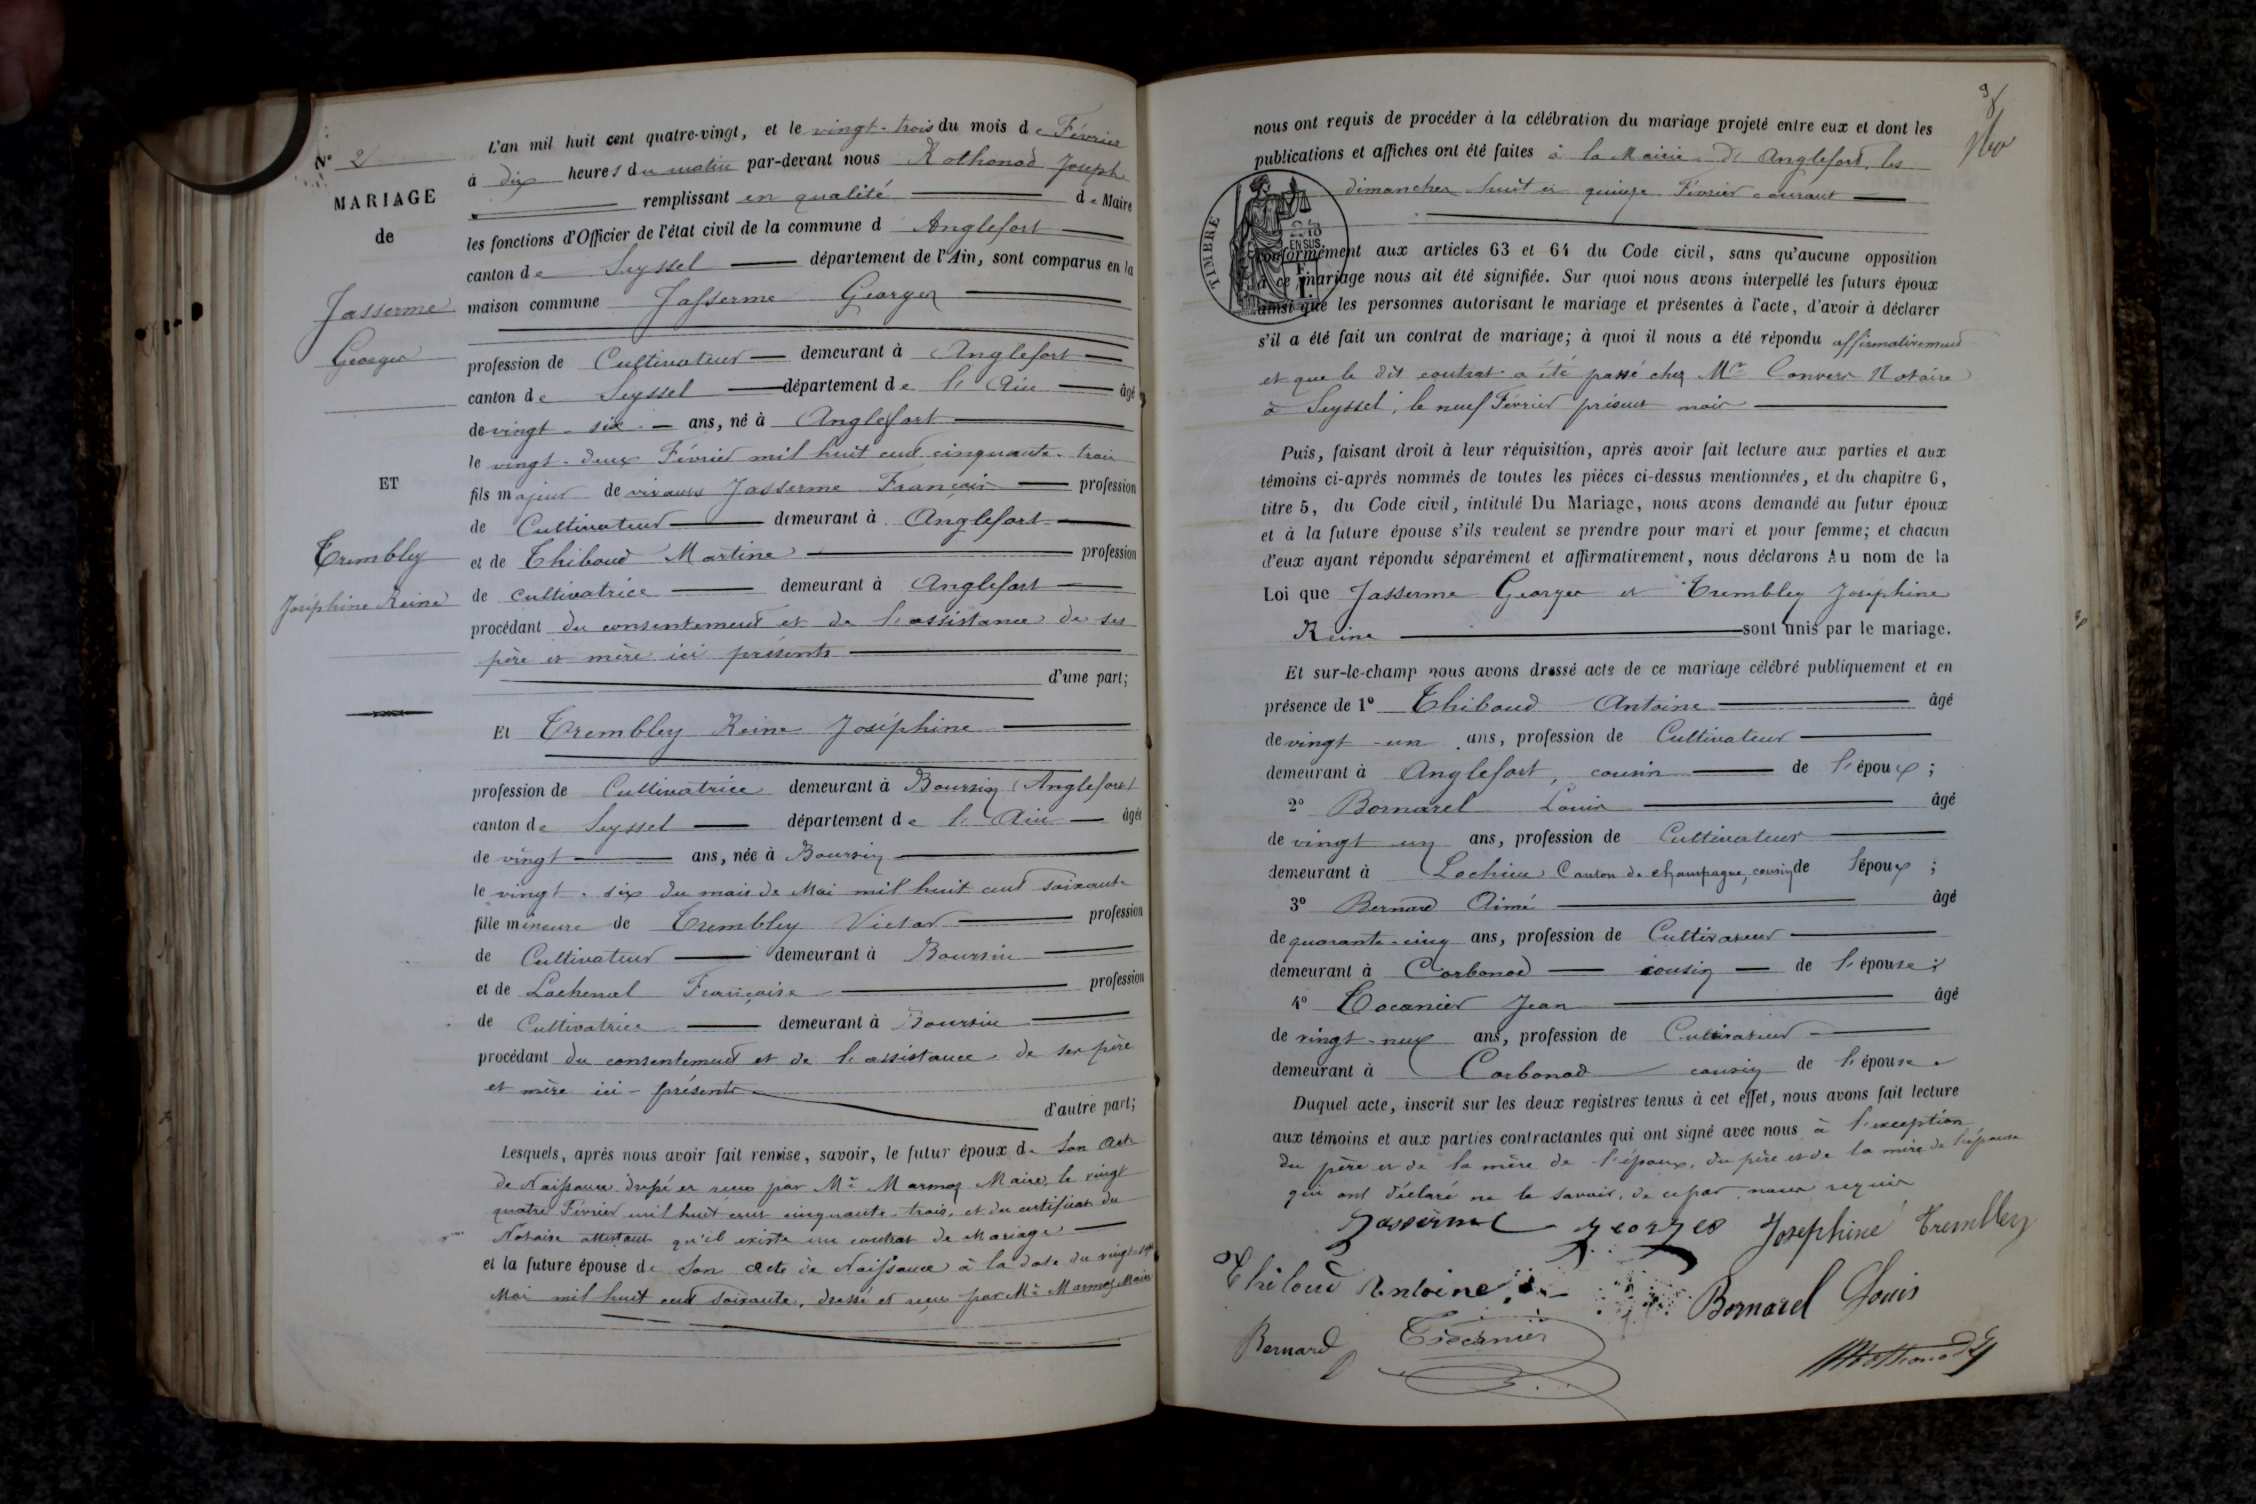 N° 2
MARIAGE
de
Jasserme
Georges
ET
Trembley
Joséphine Reine
L'an mil huit cent quatre-vingt, et le vingt-trois du mois de Février
à dix heures du matin par-devant nous Rothonod Joseph
remplissant en qualité de Maire
les fonctions d'Officier de l'état civil de la commune d Anglefort
canton de Seyssel département de l'Ain, sont comparus en la
maison commune Jasserme Georges
profession de Cultivateur demeurant à Anglefort
canton de Seyssel département de l'Ain âgé
de vingt-six ans, né à Anglefort
le vingt-deux Février mil huit cent cinquante-trois
fils majeur de vivants Jasserme François profession
de Cultivateur demeurant à Anglefort
et de Thiboud Martine profession
de cultivatrice demeurant à Anglefort
procédant du consentement et de l'assistance de ses
père et mère ici présents
d'une part;
Et Trembley Reine Joséphine
profession de Cultivatrice demeurant à Boursin (Anglefort)
canton de Seyssel département de l'Ain âgée
de vingt ans, née à Boursin
le vingt-six du mois de Mai mil huit cent soixante
fille mineure de Trembley Victor profession
de Cultivateur demeurant à Boursin
et de Lachenal Françoise profession
de Cultivatrice demeurant à Boursin
procédant du consentement et de l'assistance de ses père
et mère ici-présents
d'autre part;
Lesquels, après nous avoir fait remise, savoir, le futur époux de son acte
de Naissance dressé et reçu par Mr Marmoz Maire, le vingt
quatre Février mil huit cent cinquante-trois, et du certificat du
Notaire attestant qu'il existe un contrat de Mariage
et la future épouse de son acte de Naissance à la date du vingt-sept
Mai mil huit cent soixante, dressé et reçu par Mr Marmoz Maire
nous ont requis de procéder à la célébration du mariage projeté entre eux et dont les
publications et affiches ont été faites à la Mairie d'Anglefort, les
dimanches huit et quinze Février courant
TIMBRE
EN SUS
conformément aux articles 63 et 64 du Code civil, sans qu'aucune opposition
à ce mariage nous ait été signifiée. Sur quoi nous avons interpellé les futurs époux
ainsi que les personnes autorisant le mariage et présentes à l'acte, d'avoir à déclarer
s'il a été fait un contrat de mariage; à quoi il nous a été répondu affirmativement
et que le dit contrat a été passé chez Me Convers Notaire
à Seyssel, le neuf Février présent mois
Puis, faisant droit à leur réquisition, après avoir fait lecture aux parties et aux
témoins ci-après nommés de toutes les pièces ci-dessus mentionnées, et du chapitre 6,
titre 5, du Code civil, intitulé Du Mariage, nous avons demandé au futur époux
et à la future épouse s'ils veulent se prendre pour mari et pour femme; et chacun
d'eux ayant répondu séparément et affirmativement, nous déclarons Au nom de la
Loi que Jasserme Georges et Trembley Joséphine
Reine sont unis par le mariage.
Et sur-le-champ nous avons dressé acte de ce mariage célébré publiquement et en
présence de 1° Thiboud Antoine âgé
de vingt-un ans, profession de Cultivateur
demeurant à Anglefort, cousin de l'époux;
2° Bornarel Louis âgé
de vingt un ans, profession de Cultivateur
demeurant à Lochieu Canton de champagne, cousin de l'époux;
3° Bernard Aimé âgé
de quarante-cinq ans, profession de Cultivateur
demeurant à Corbonod cousin de l'épouse;
4° Tocanier Jean âgé
de vingt-neuf ans, profession de Cultivateur
demeurant à Corbonod cousin de l'épouse.
Duquel acte, inscrit sur les deux registres tenus à cet effet, nous avons fait lecture
aux témoins et aux parties contractantes qui ont signé avec nous à l'exception
du père et de la mère de l'époux, du père et de la mère de l'épouse
qui ont déclaré ne le savoir, de ce par nous requis
Jasserme Georges Josephine Trembley
Thiboud Antoine Bornarel Louis
Bernard Tocanier